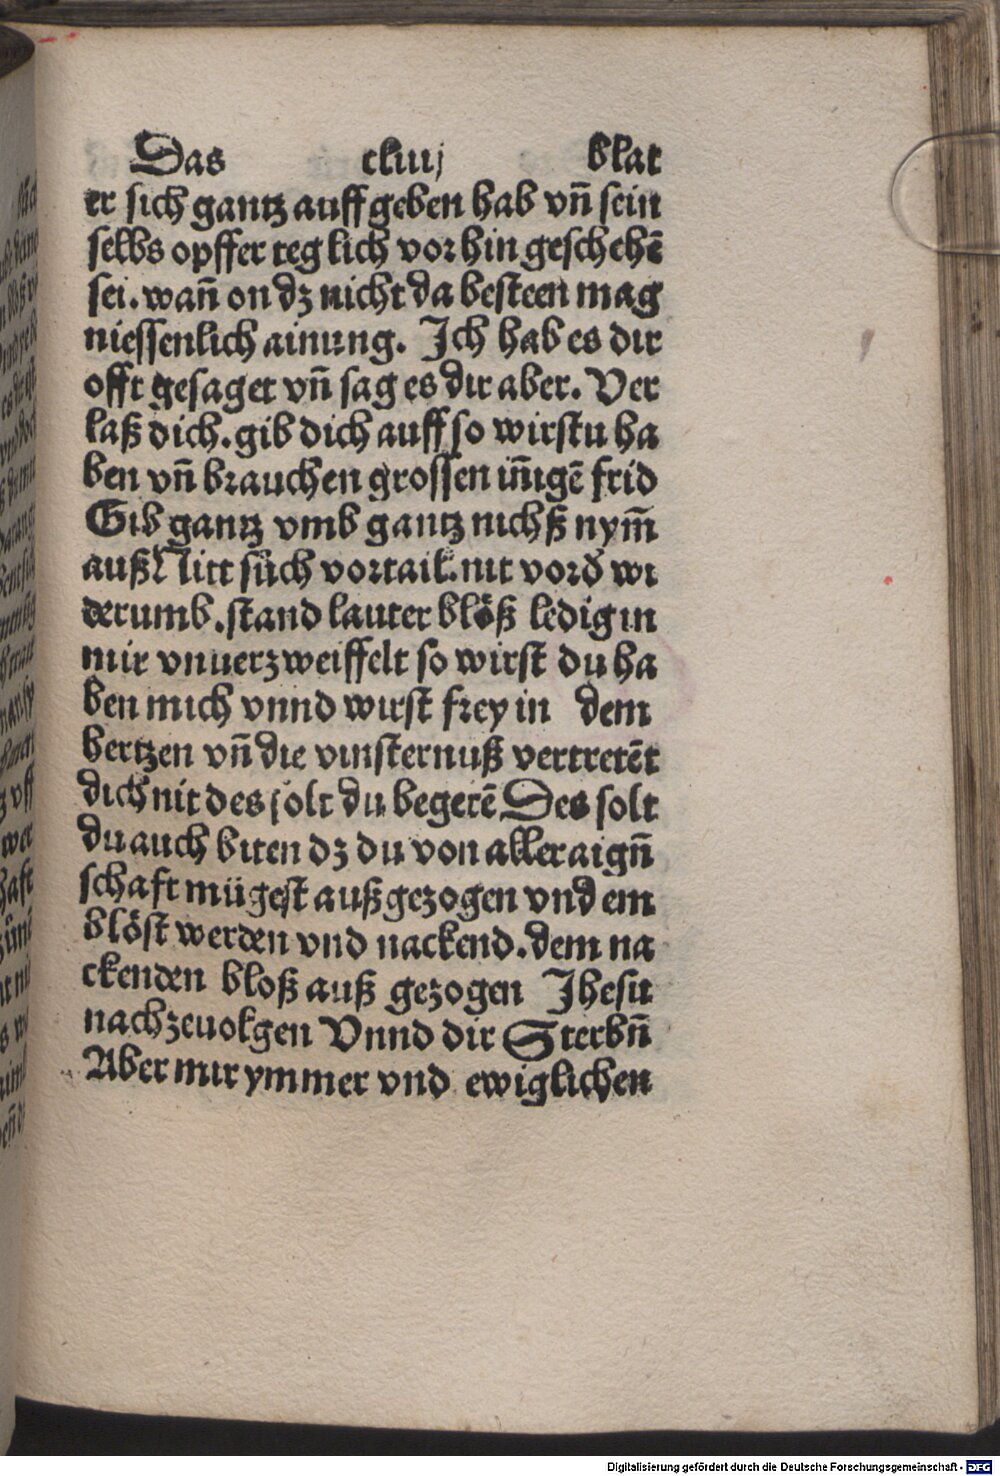 Das cliiij blat
er sich gantz auffgeben hab vn̄ sein
selbs opffer teglich vorhin geschehē
sei. wan̄ on dz nicht da besteen mag
niessenlich ainung. Ich hab es dir
offt gesaget vn̄ sag es dir aber. Ver
laß dich. gib dich auff so wirstu ha
ben vn̄ brauchen grossen in̄igē frid
Gib gantz vmb gantz nichß nym̄
auß Nitt sůch vortail. nit vorď wi
derumb. stand lauter blöß ledig in
mir vnuerzweiffelt so wirst du ha
ben mich vnnd wirst frey in dem
hertzen vn̄ die vinsternuß vertretēt
dich nit des solt du begerē Des solt
du auch biten dz du von aller aign̄
schaft mügest außgezogen vnd em
blöst werden vnd nackend. dem na
ckenden bloß auß gezogen Jhesu
nachzeuolgen Vnnd dir Sterbn̄
Aber mir ymmer vnd ewiglichen
Digitalisierung gefördert durch die Deutsche Forschungsgemeinschaft - DFG